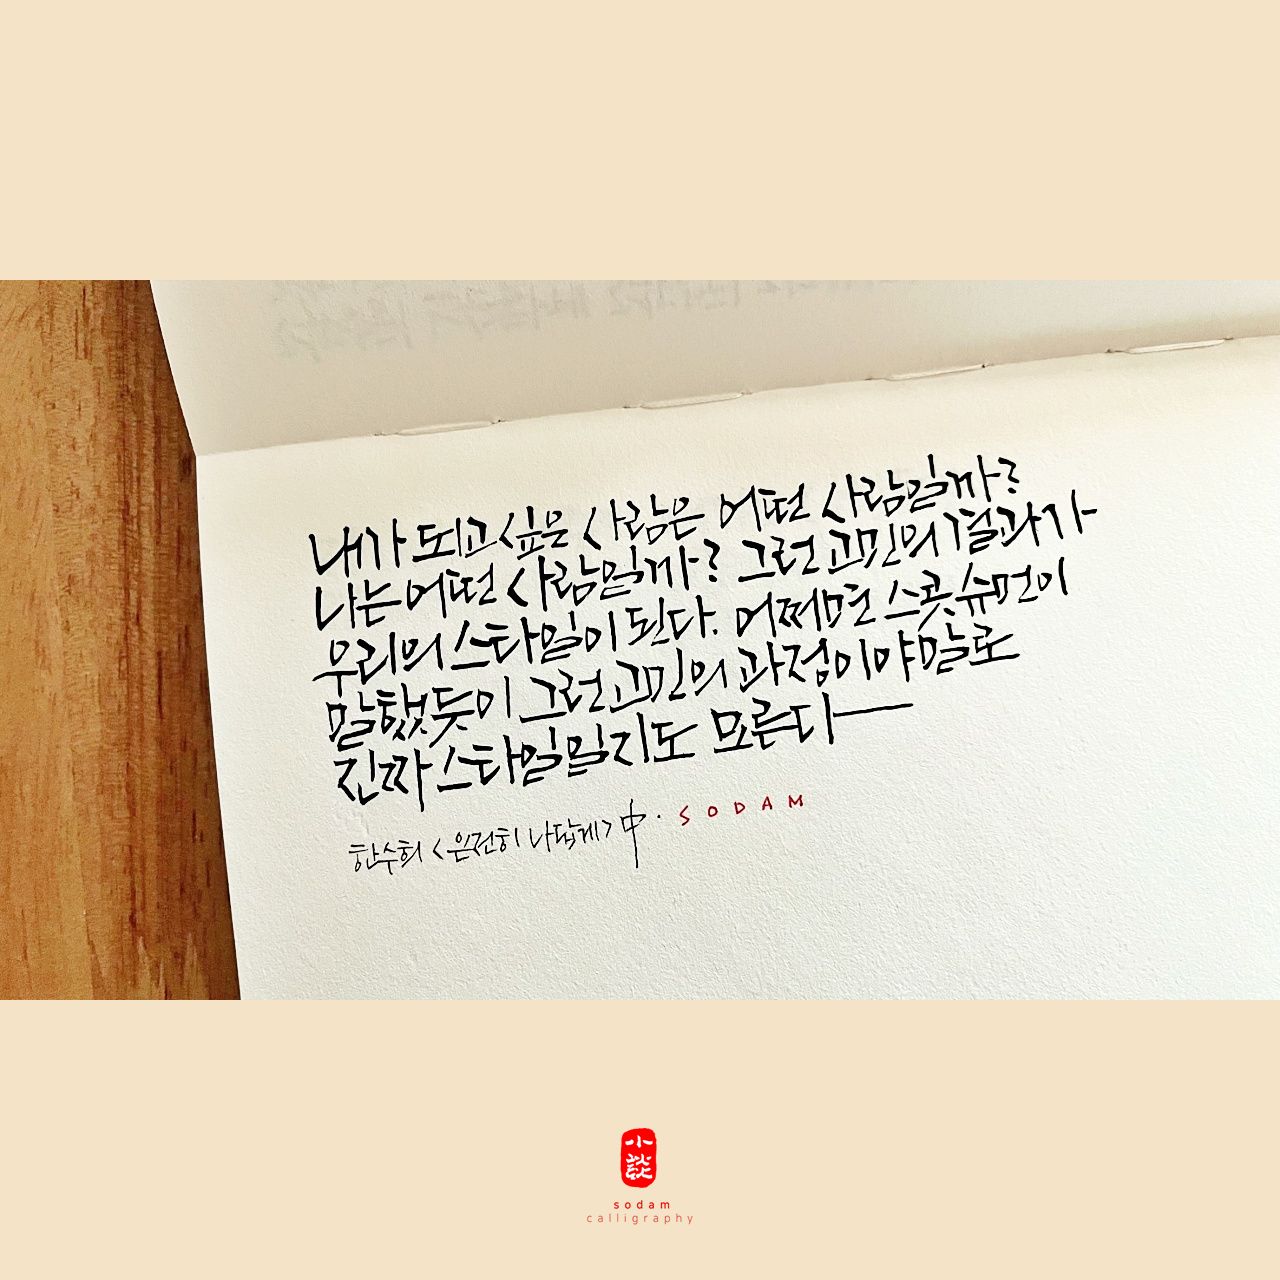 내가 되고 싶은 사람은 어떤 사람일까?
나는 어떤 사람일까? 그런 고민의 결과가
우리의 스타일이 된다. 어쩌면 스콧 슈먼이
말했듯이 그런 고민의 과정이야말로
진짜 스타일일지도 모른다
한수희 <온전히 나답게> 中 · SODAM
小談
sodam
calligraphy